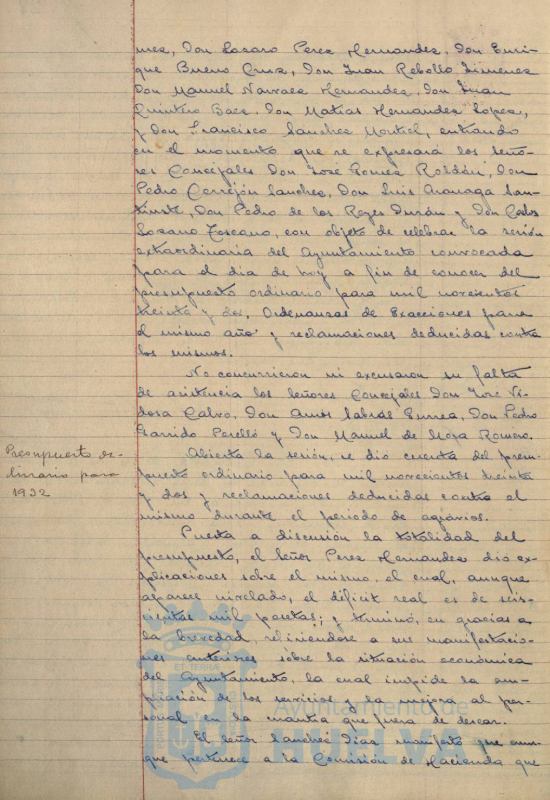 mez, Don Lazaro Perez Hernandez, Don Enri-
que Bueno Cruz, Don Juan Rebollo Jimenez
Don Manuel Narvaez Hernandez, Don Juan
Quintero Baez, Don Matías Hernandez Lopez,
y Don Francisco Sanchez Montiel, entrando
en el momento que se expresará los seño-
res Concejales Don José Gomez Roldán, Don
Pedro Cerrejón Sanchez, Don Luis
Don Pedro de los Reyes Durán y Don Carlos
Lozano Toscano, con objeto de celebrar la sesión
extraordinaria del Ayuntamiento convocada
para el dia de hoy a fin de conocer del
presupuesto ordinario para mil novecientos
treinta y dos, Ordenanzas de Exacciones para
el mismo año y reclamaciones deducidas contra
los mismos.
No concurrieron ni excusaron su falta
de asistencia los señores Concejales Don José Vi-
dosa Calvo, Don Amós Sabrás Gurrea, Don Pedro
Garrido Perelló y Don Manuel de Mora Romero.
Presupuesto or-
dinario para
1932
Abierta la sesión, se dió cuenta del presu-
puesto ordinario para mil novecientos treinta
y dos y reclamaciones deducidas contra el
mismo durante el periodo de agravios.
Puesta a discusión la totalidad del
presupuesto, el señor Perez Hernandez dió ex-
plicaciones sobre el mismo, el cual, aunque
aparece nivelado, el déficit real es de seis-
cientas mil pesetas; y terminó, en gracias a
la brevedad, refiriendose a sus manifestacio-
nes anteriores sobre la situación económica
del Ayuntamiento, la cual impide la am-
pliación de los servicios y la mejora al per-
sonal en la cuantia que fuera de desear.
El señor Sanchez Díaz manifestó que aun-
que pertenece a la Comisión de Hacienda que
Ayuntamiento de
HUELVA